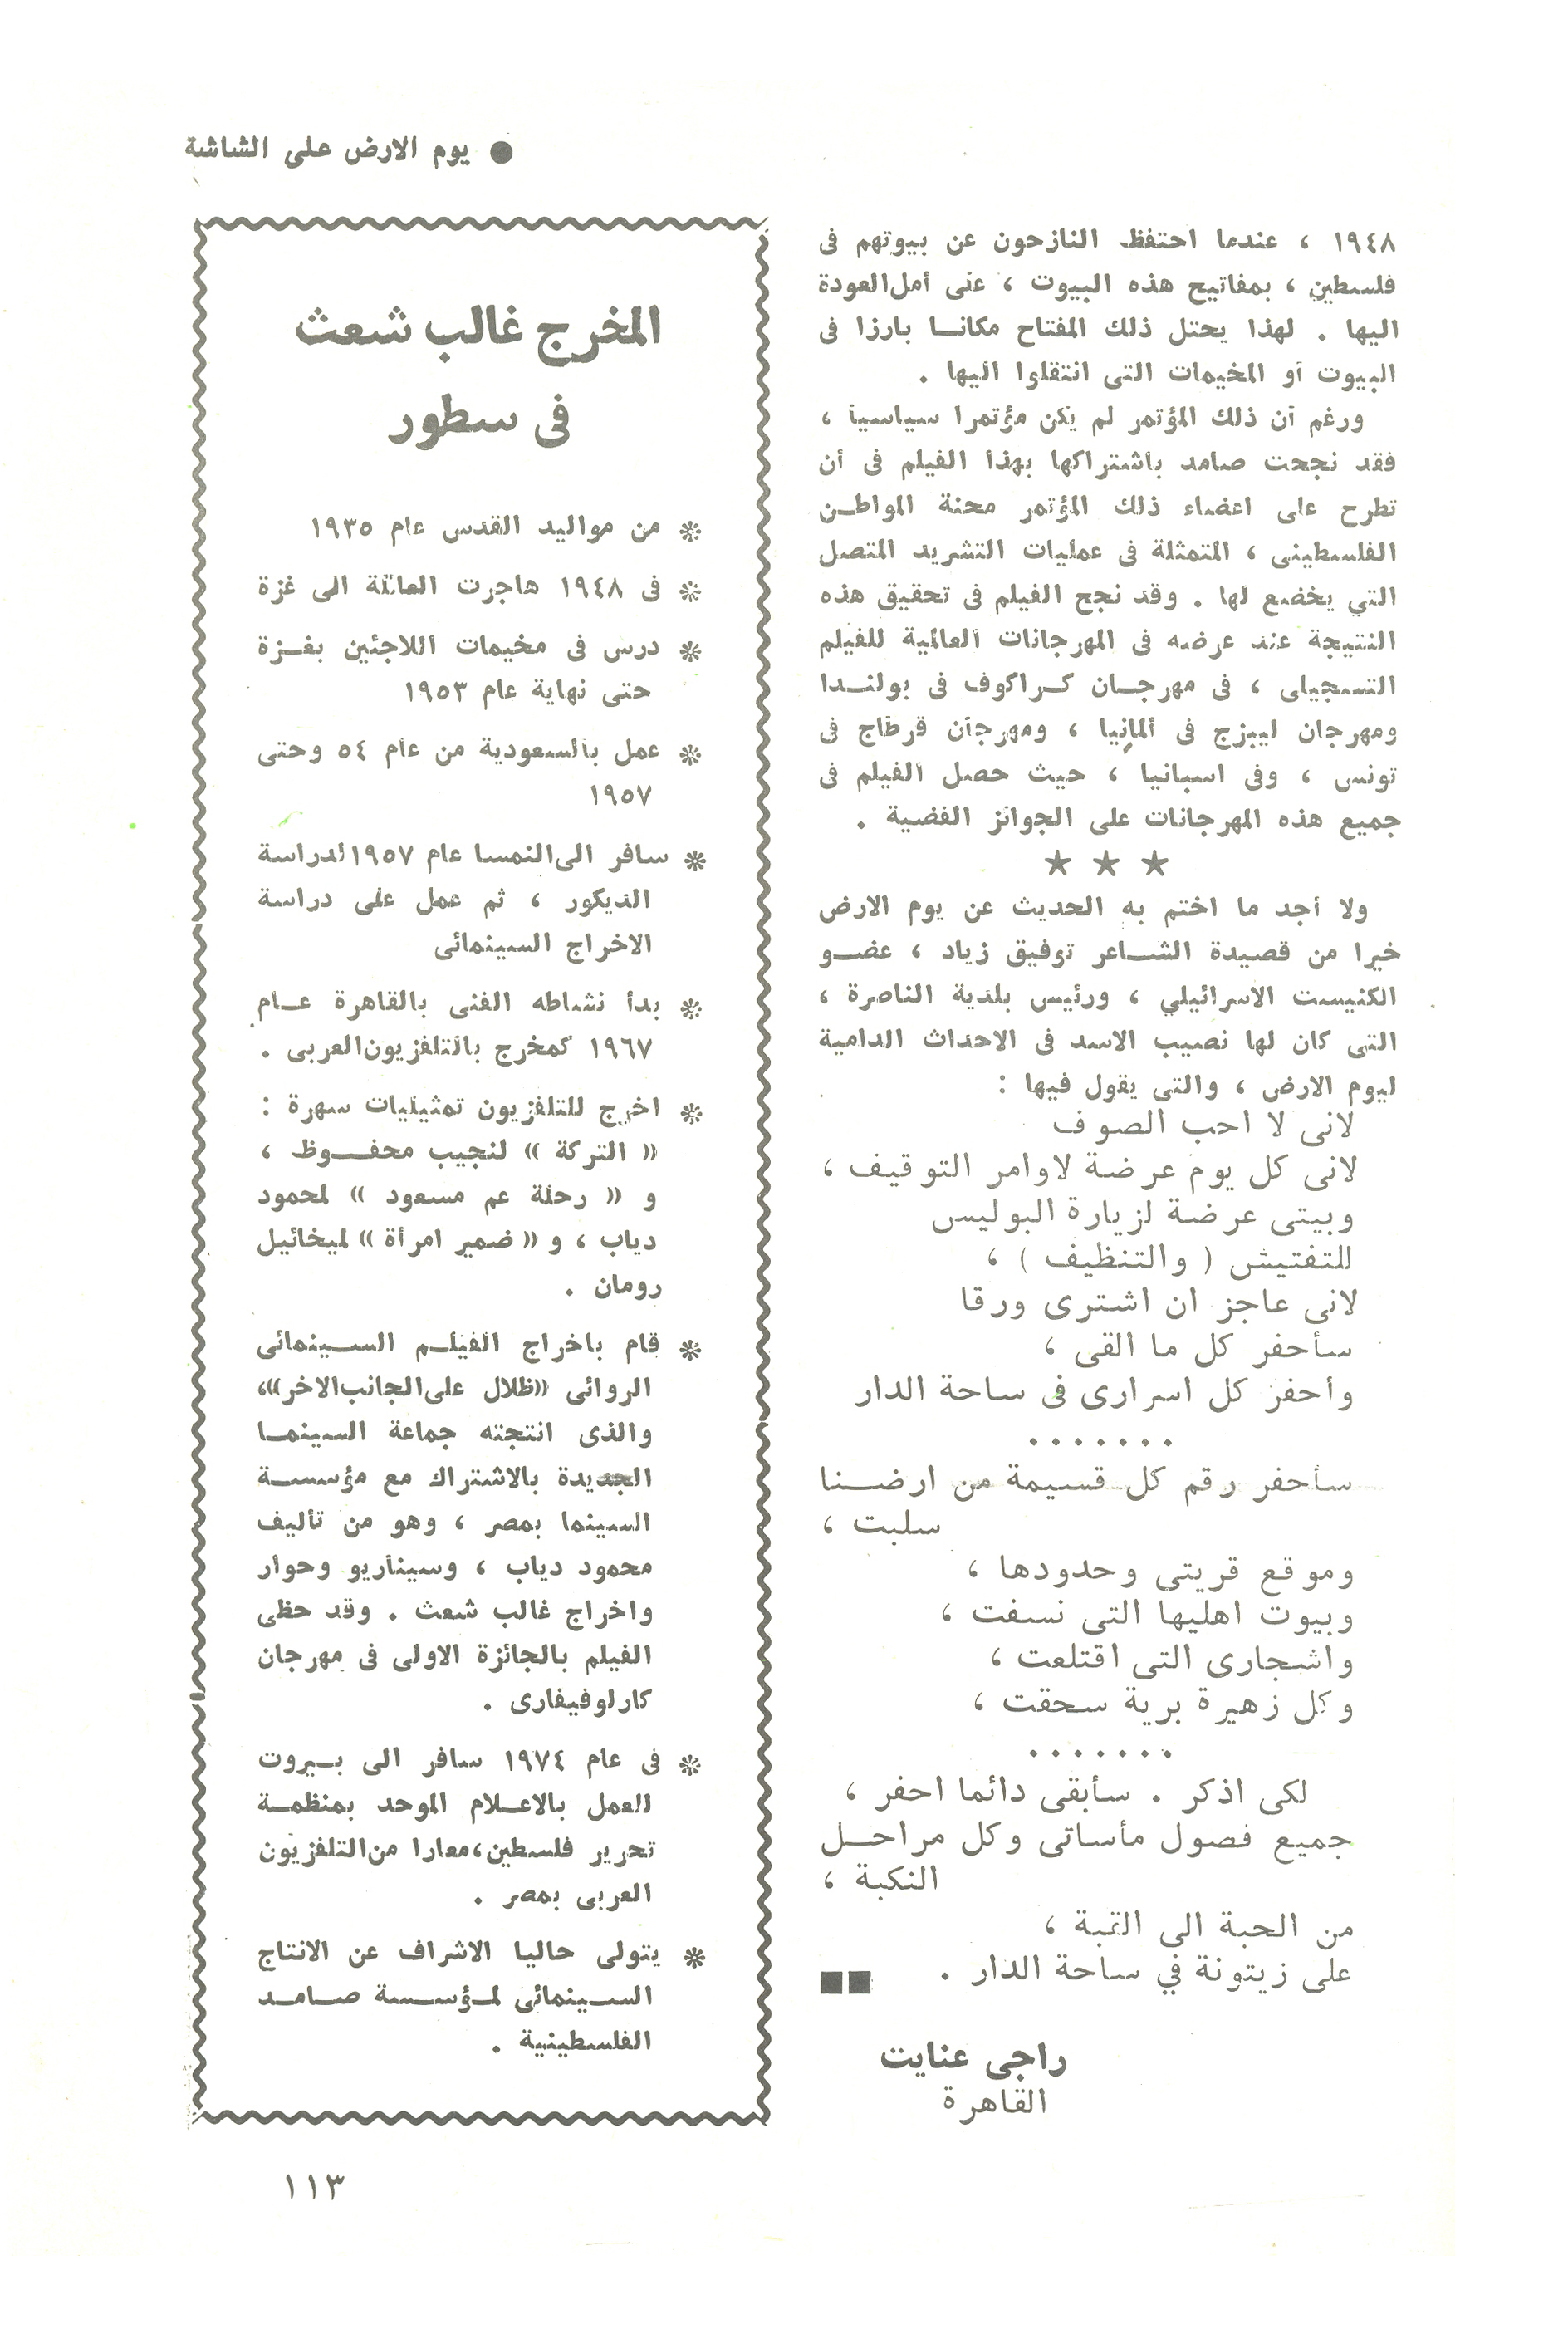 ● يوم الارض على الشاشة
١٩٤٨ ، عندما احتفظ النازحون عن بيوتهم فى
فلسطين ، بمفاتيح هذه البيوت ، على أمل العودة
اليها . لهذا يحتل ذلك المفتاح مكانا بارزا فى
البيوت أو المخيمات التى انتقلوا اليها .
ورغم أن ذلك المؤتمر لم يكن مؤتمرا سياسيا ،
فقد نجحت صامد باشتراكها بهذا الفيلم فى أن
تطرح على اعضاء ذلك المؤتمر محنة المواطن
الفلسطينى ، المتمثلة فى عمليات التشريد المتصل
التي يخضع لها . وقد نجح الفيلم فى تحقيق هذه
النتيجة عند عرضه فى المهرجانات العالمية للفيلم
التسجيلى ، فى مهرجان كراكوف فى بولندا
ومهرجان ليبزج فى ألمانيا ، ومهرجان قرطاج فى
تونس ، وفى اسبانيا ، حيث حصل الفيلم فى
جميع هذه المهرجانات على الجوائز الفضية .
★ ★ ★
ولا أجد ما اختم به الحديث عن يوم الارض
خيرا من قصيدة الشاعر توفيق زياد ، عضو
الكنيست الاسرائيلي ، ورئيس بلدية الناصرة ،
التى كان لها نصيب الاسد فى الاحداث الدامية
ليوم الارض ، والتى يقول فيها :
لانى لا احب الصوف
لانى كل يوم عرضة لاوامر التوقيف ،
وبيتى عرضة لزيارة البوليس
للتفتيش ( والتنظيف ) ،
لانى عاجز ان اشترى ورقا
سأحفر كل ما القى ،
وأحفر كل اسرارى فى ساحة الدار
. . . . . . .
سأحفر رقم كل قسيمة من ارضنا
سلبت ،
وموقع قريتى وحدودها ،
وبيوت اهليها التى نسفت ،
واشجارى التى اقتلعت ،
وكل زهيرة برية سحقت ،
. . . . . . .
لكى اذكر . سأبقى دائما احفر ،
جميع فصول مأساتى وكل مراحل
النكبة ،
من الحبة الى القبة ،
على زيتونة في ساحة الدار . ■■
راجى عنايت
القاهرة
المخرج غالب شعث
فى سطور
* من مواليد القدس عام ١٩٣٥
* فى ١٩٤٨ هاجرت العائلة الى غزة
* درس فى مخيمات اللاجئين بغزة
حتى نهاية عام ١٩٥٣
* عمل بالسعودية من عام ٥٤ وحتى
١٩٥٧
* سافر الى النمسا عام ١٩٥٧ لدراسة
الديكور ، ثم عمل على دراسة
الاخراج السينمائى
* بدأ نشاطه الفنى بالقاهرة عام
١٩٦٧ كمخرج بالتلفزيون العربى .
* اخرج للتلفزيون تمثيليات سهرة :
« التركة » لنجيب محفوظ ،
و « رحلة عم مسعود » لمحمود
دياب ، و « ضمير امرأة » لميخائيل
رومان .
* قام باخراج الفيلم السينمائى
الروائى «ظلال على الجانب الاخر»،
والذى انتجته جماعة السينما
الجديدة بالاشتراك مع مؤسسة
السينما بمصر ، وهو من تأليف
محمود دياب ، وسيناريو وحوار
واخراج غالب شعث . وقد حظى
الفيلم بالجائزة الاولى فى مهرجان
كارلوفيفارى .
* فى عام ١٩٧٤ سافر الى بيروت
للعمل بالاعلام الموحد بمنظمة
تحرير فلسطين، معارا من التلفزيون
العربى بمصر .
* يتولى حاليا الاشراف عن الانتاج
السينمائى لمؤسسة صامد
الفلسطينية .
١١٣